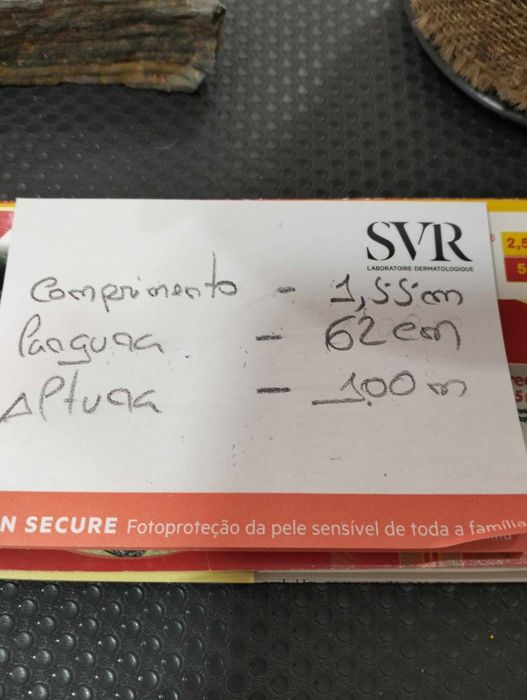 SVR
LABORATOIRE DERMATOLOGIQUE
Comprimento - 1,55cm
Largura - 62cm
Altura - 1.00 m
N SECURE Fotoproteção da pele sensível de toda a família
2,5